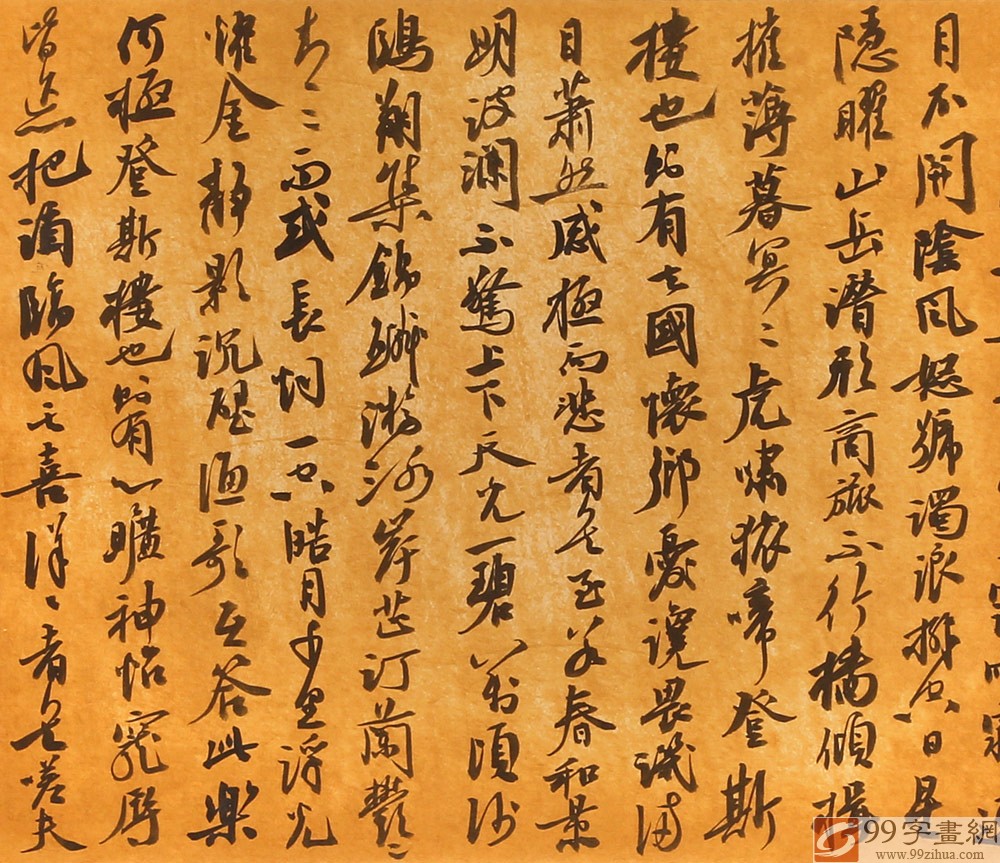 月不開陰風怒號濁浪排空日星
隱曜山岳潛形商旅不行檣傾楫
摧薄暮冥〻虎嘯猿啼登斯
樓也則有去國懷鄉憂讒畏譏滿
目蕭然感極而悲者矣至若春和景
明波瀾不驚上下天光一碧萬頃沙
鷗翔集錦鱗游泳岸芷汀蘭鬱〻
青〻而或長烟一空皓月千里浮光
耀金靜影沉璧漁歌互答此樂
何極登斯樓也則有心曠神怡寵辱
皆忘把酒臨風其喜洋〻者矣嗟夫
99字畫網
www.99zihua.com